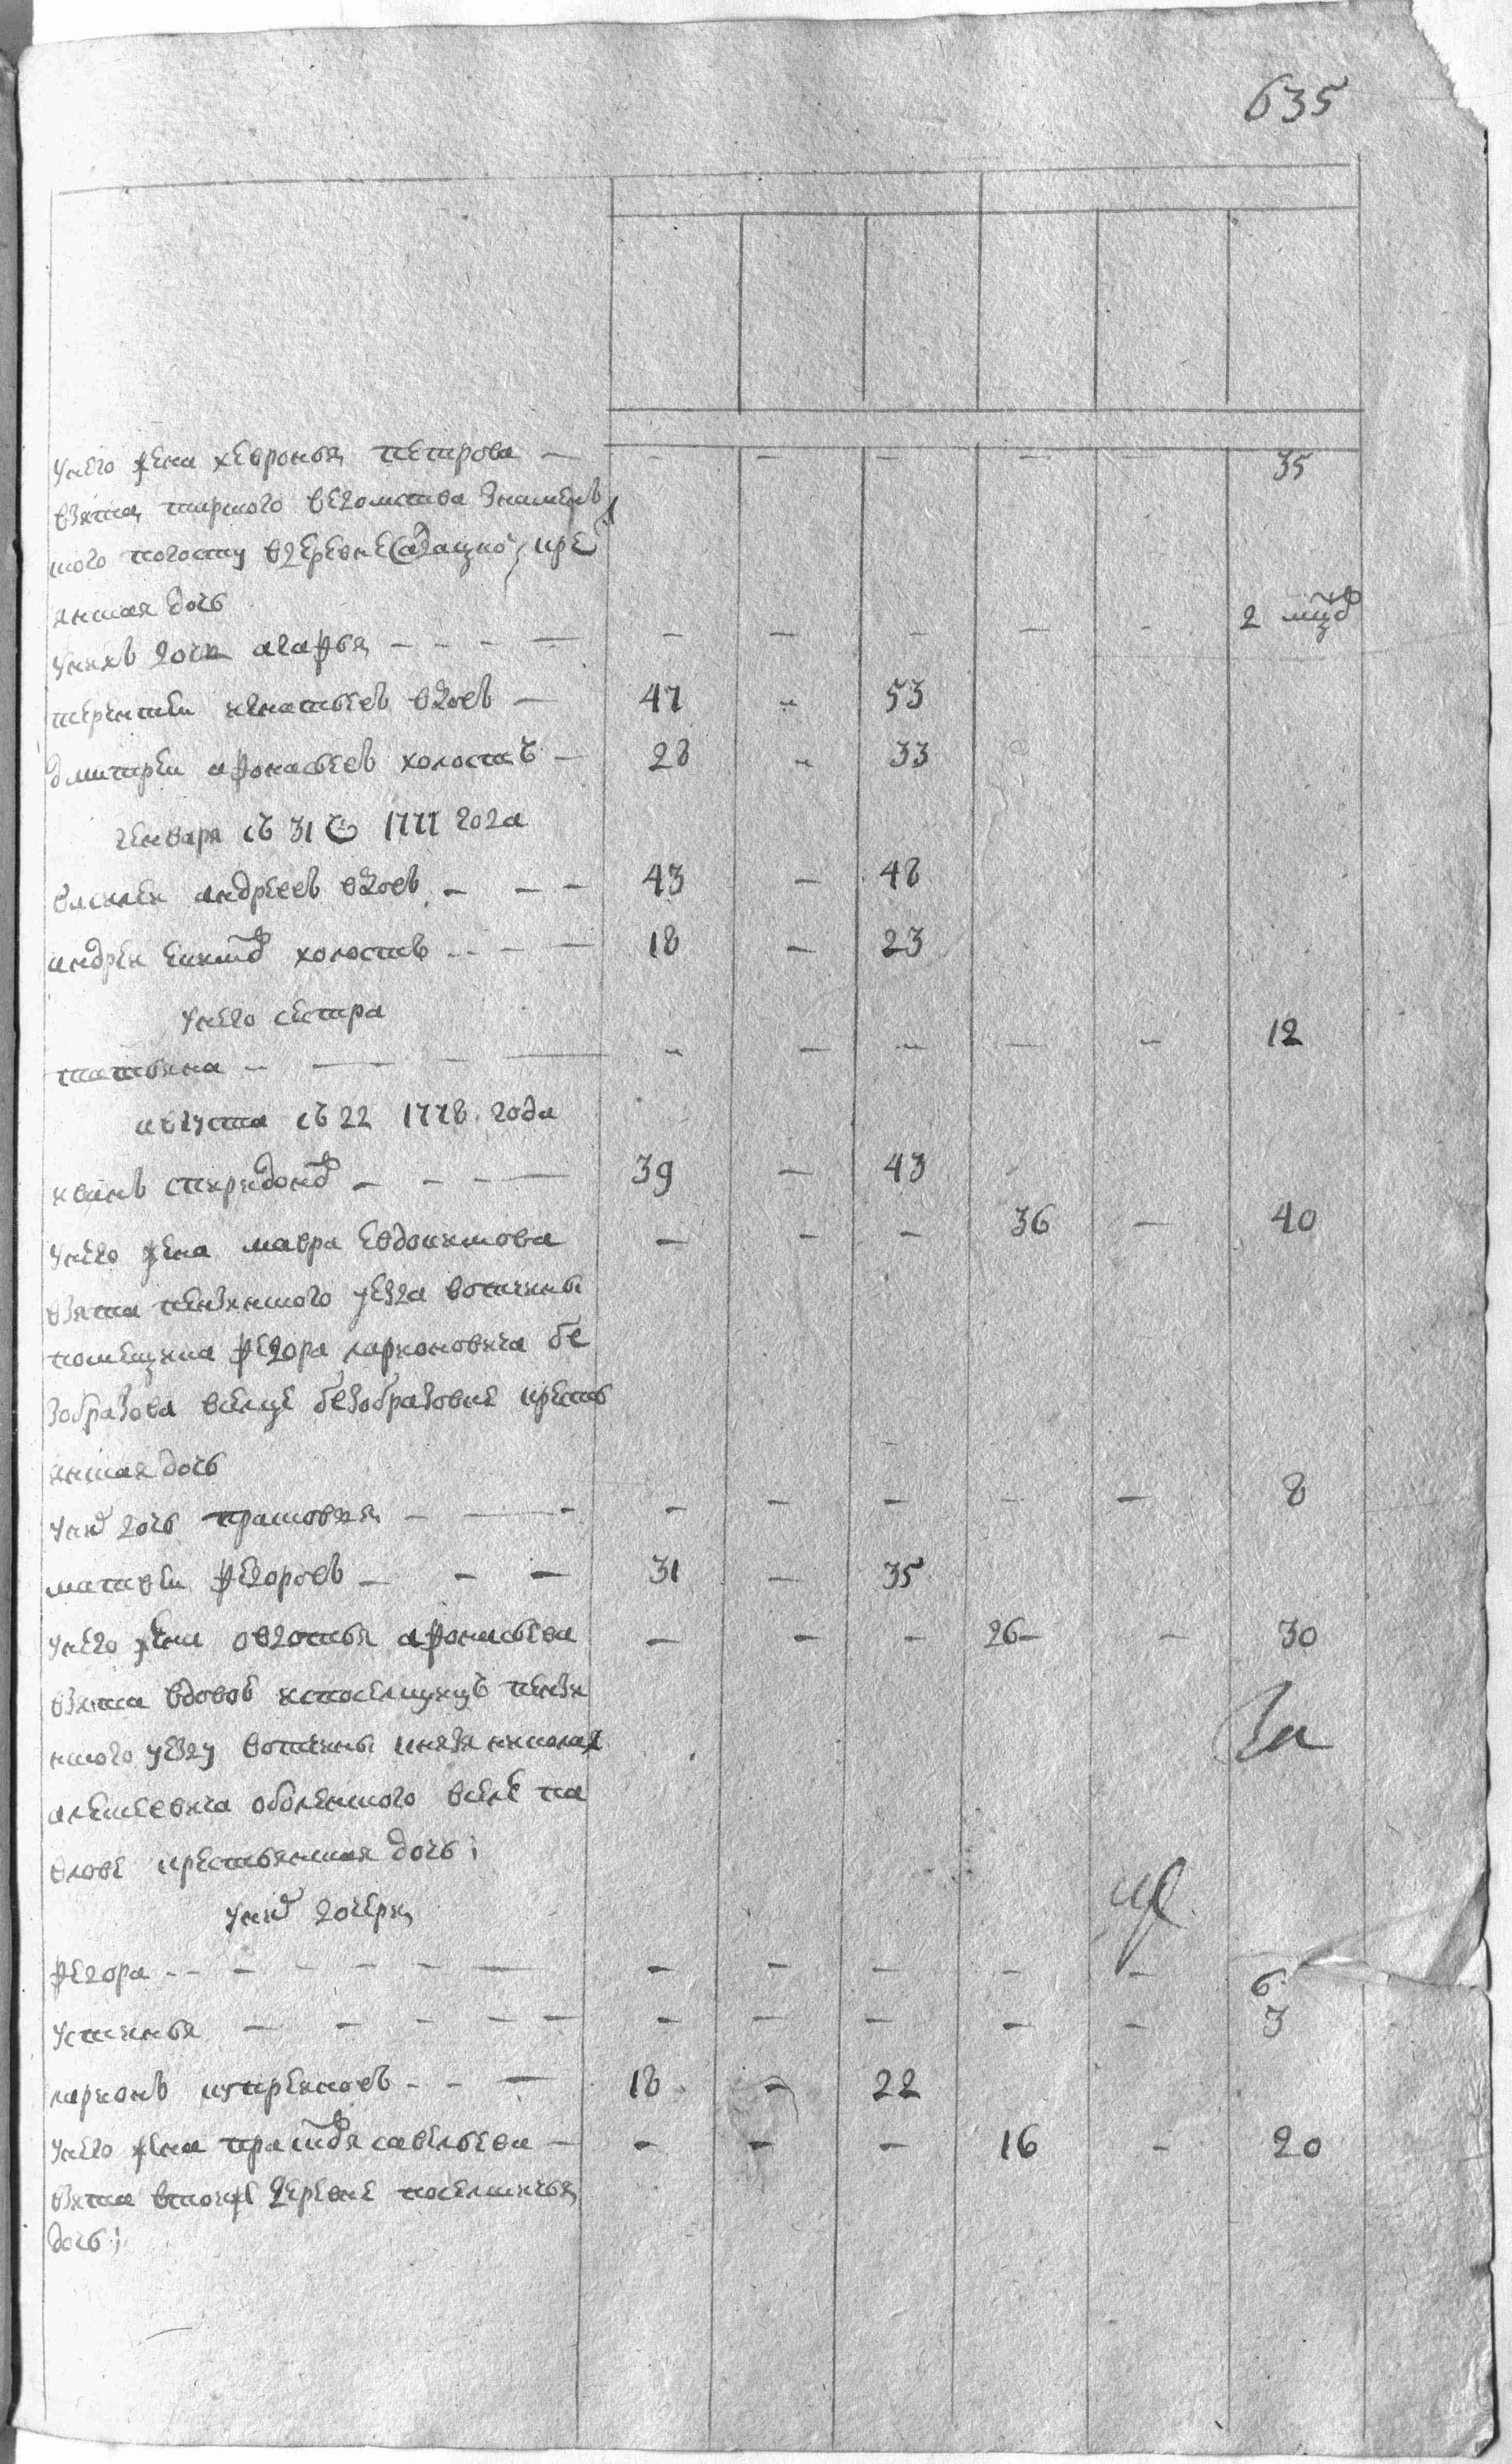 635
у него жена хевронья петрова — - - - - - 35
взята тарского ведомства знаменъ
ского погосту в деревне кре
янская дочь
у них дочь агафья - - - — - - - - - 2 мцов
терентей игнатьев вдов — 47 - 53
дмитреи афонасьев холостъ — 28 - 33
генваря съ 31 1777 года
василеи андреев вдов - - - 43 - 48
андреи холостъ - - — 18 - 23
у него сестра
татьяна - — - — - - - - - 12
августа съ 22 1778 года
иван спиридонов - - - — 39 - 43
у него жена мавра евдокимова - - - 36 - 40
взята пензенского уезда вотчины
помещика федора ларионовича бе
зобразова в селце безобразовке кресть
янская дочь
у них дочь прасковья - — - - - - - - 8
матвеи федоров - - - 31 - 35
у него жена овдотья афонасьева - - - 26 - 30
взята вдовою ис поселщицъ пензе
нского уезду вотчины князя николая
алексеевича оболенского в селе па
влове крестьянская дочь;
За
у них дочери
кр
федора - - - - - - — - - - - - 6
устинья - - - - - - - - - - 3
ларион купреянов - - — 18 - 22
у него жена прасковья савельева — - - - 16 - 20
взята в тои же деревне поселшичья
дочь;